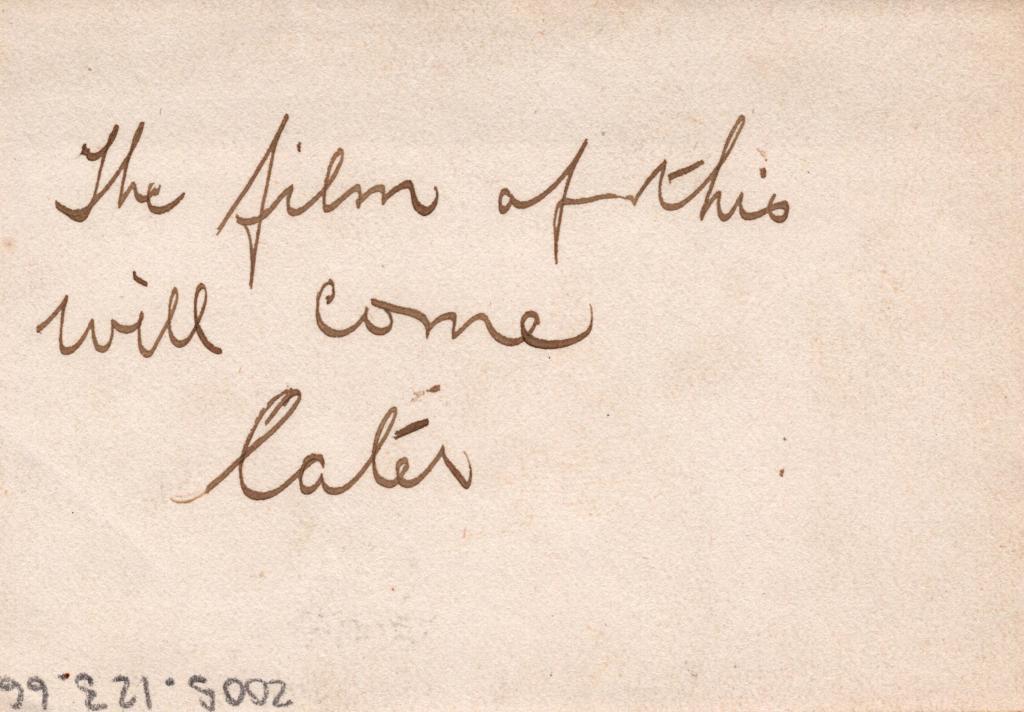 The film of this
will come
later
2005.123.66